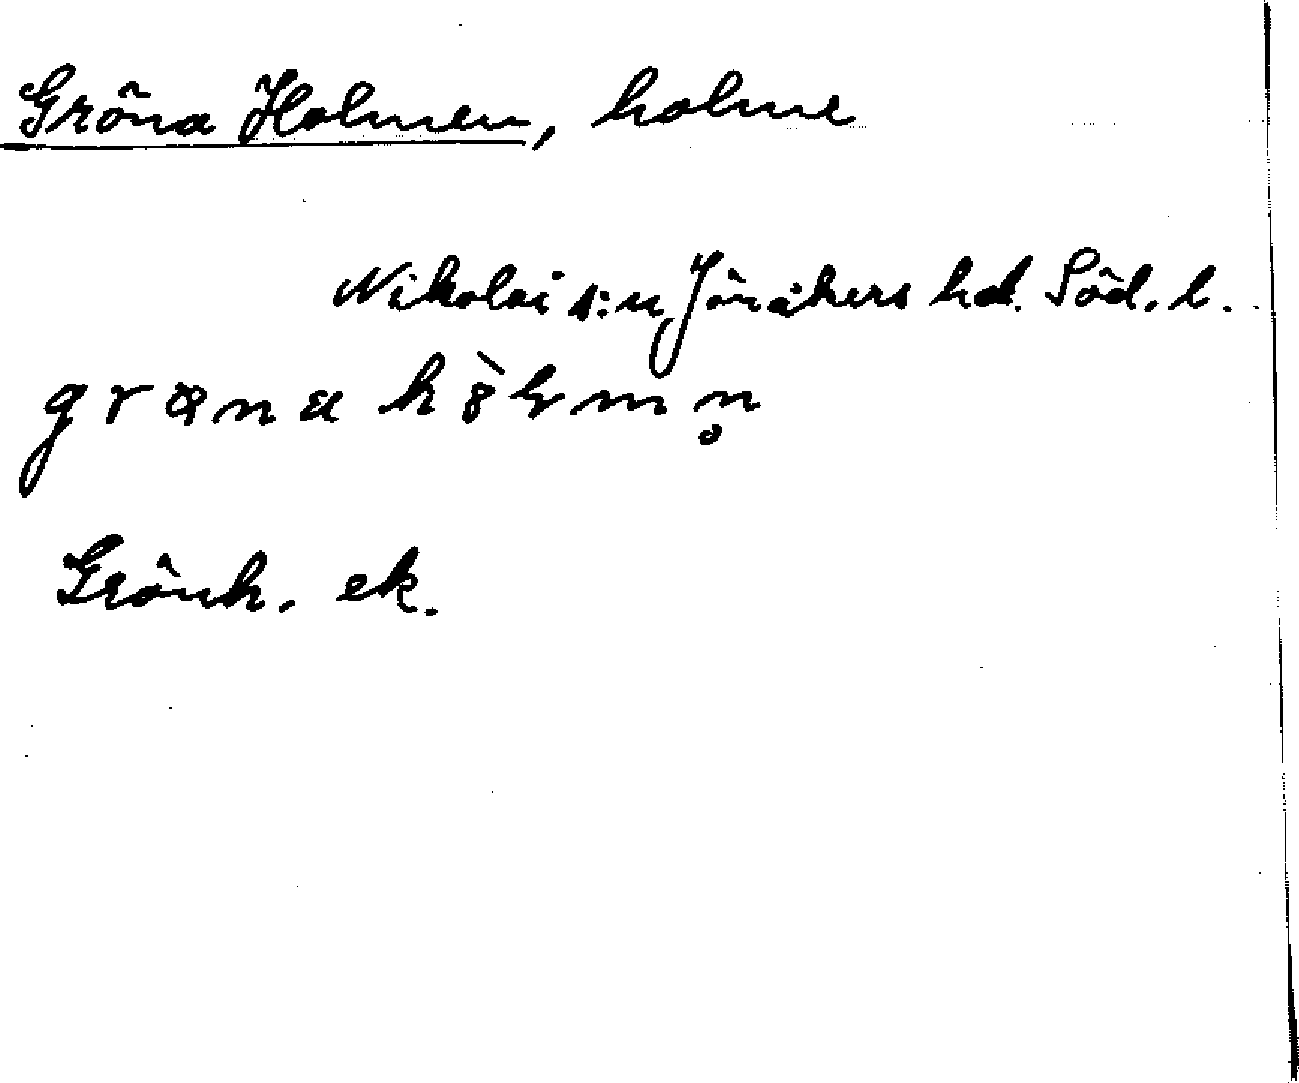 Gröna Holmen, holme
Nikolai s:n Jönåkers hd. Söd. l.
Grönh. ek.